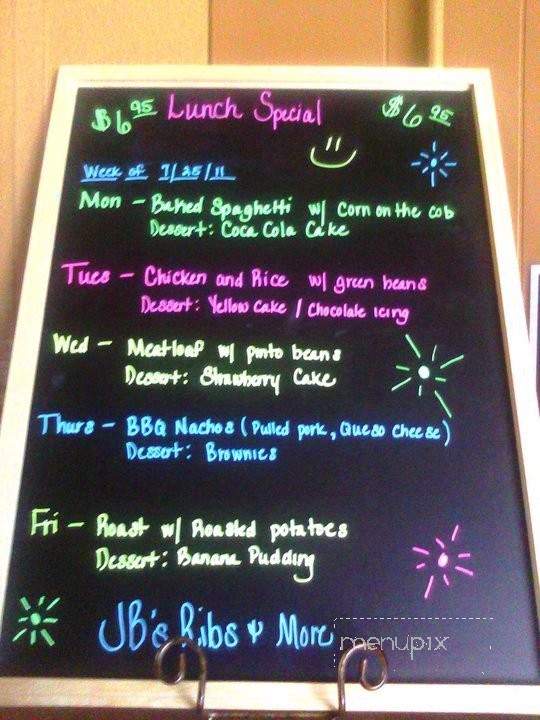 $6.95 Lunch Special $6.95
Week of 7/25/11
Mon - Baked Spaghetti w/ Corn on the cob
Dessert: Coca Cola Cake
Tues - Chicken and Rice w/ green beans
Dessert: Yellow Cake / Chocolate icing
Wed - Meatloaf w/ pinto beans
Dessert: Strawberry Cake
Thurs - BBQ Nachos (Pulled pork, Queso Cheese)
Dessert: Brownies
Fri - Roast w/ Roasted potatoes
Dessert: Banana Pudding
JB's Ribs & More
menupix